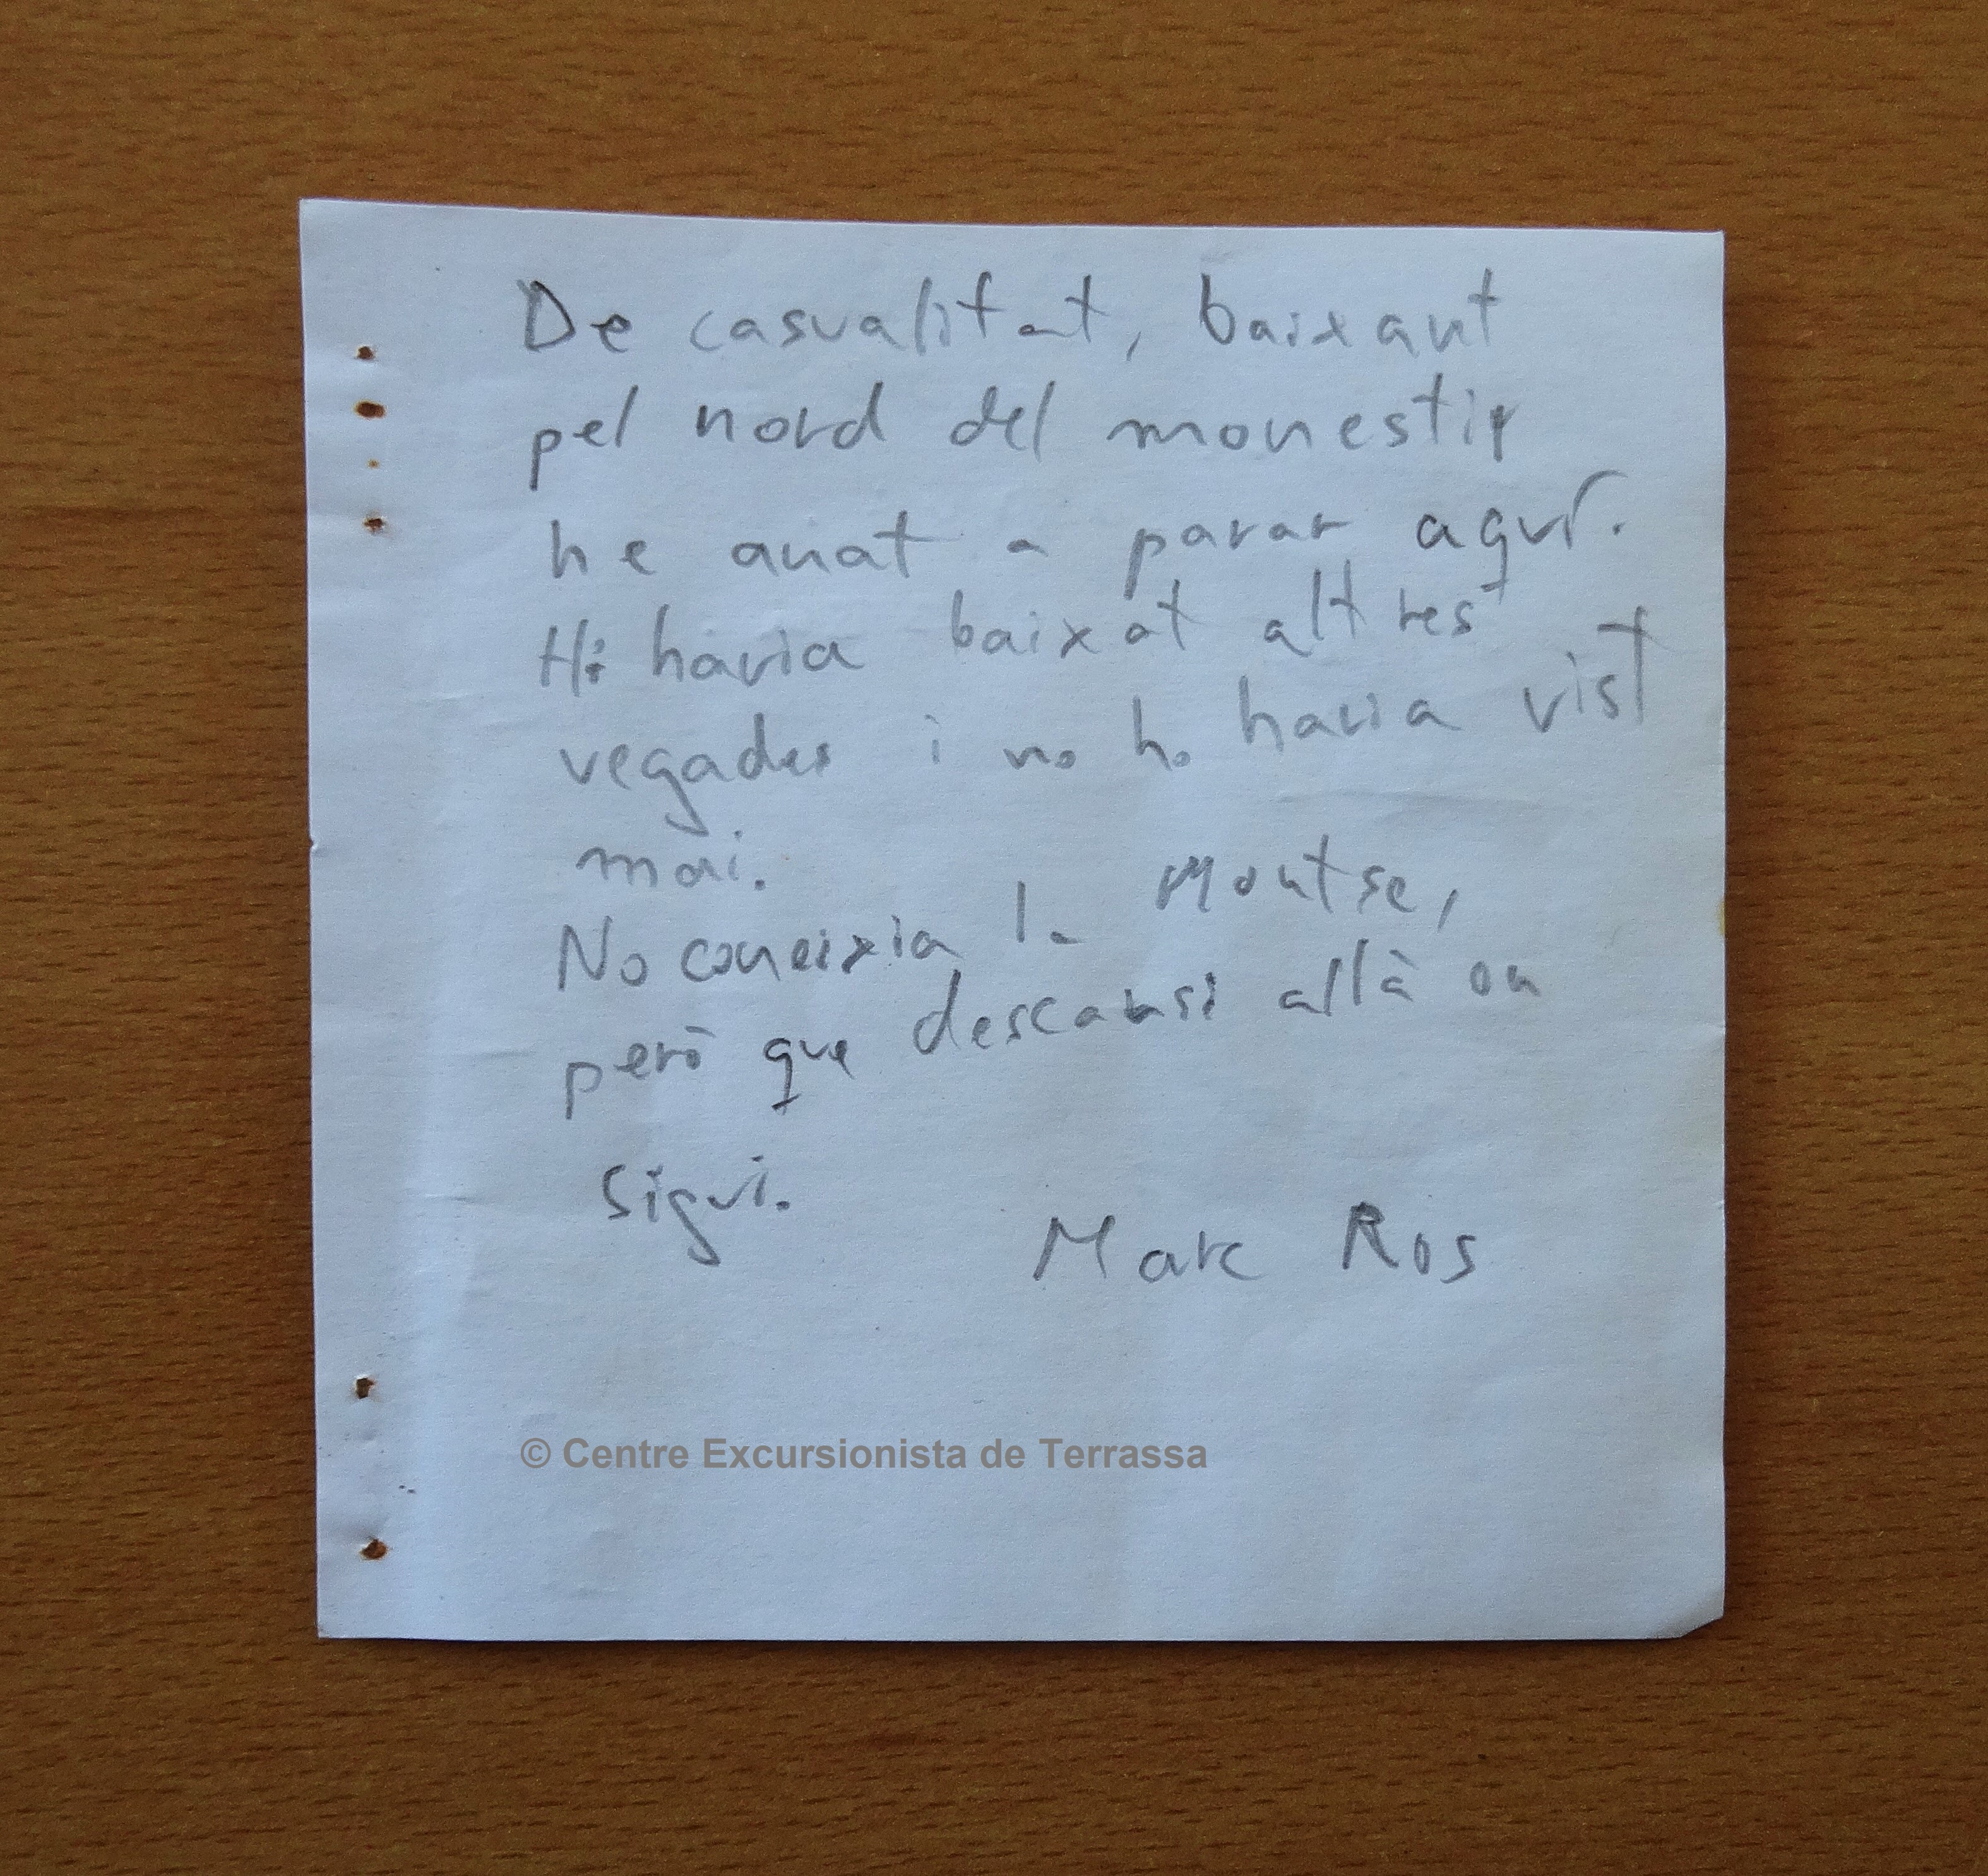 De casualitat, baixant
pel nord del monestir
he anat a parar aquí.
Hi havia baixat altres
vegades i no ho havia vist
mai.
No coneixia la Montse,
però que descansi allà on
sigui.
Marc Ros
© Centre Excursionista de Terrassa